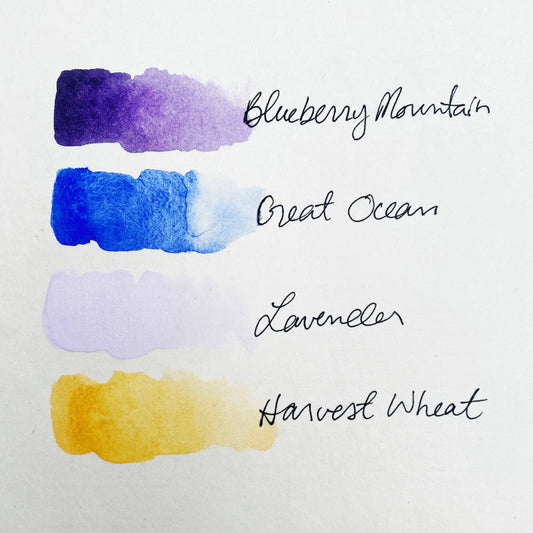 Blueberry Mountain
Great Ocean
Lavender
Harvest Wheat